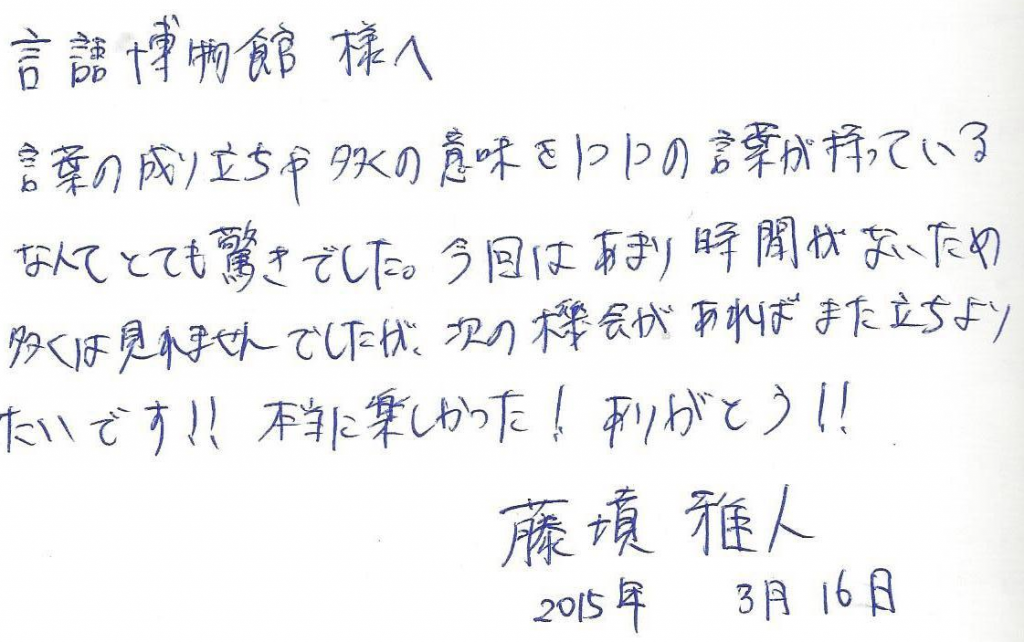 言語博物館 様へ
言葉の成り立ちや多くの意味を1つ1つの言葉が持っている
なんてとても驚きでした。今回はあまり時間がないため
多くは見れませんでしたが、次の機会があればまた立ちより
たいです!! 本当に楽しかった! ありがとう!!
藤墳 雅人
2015年 3月16日